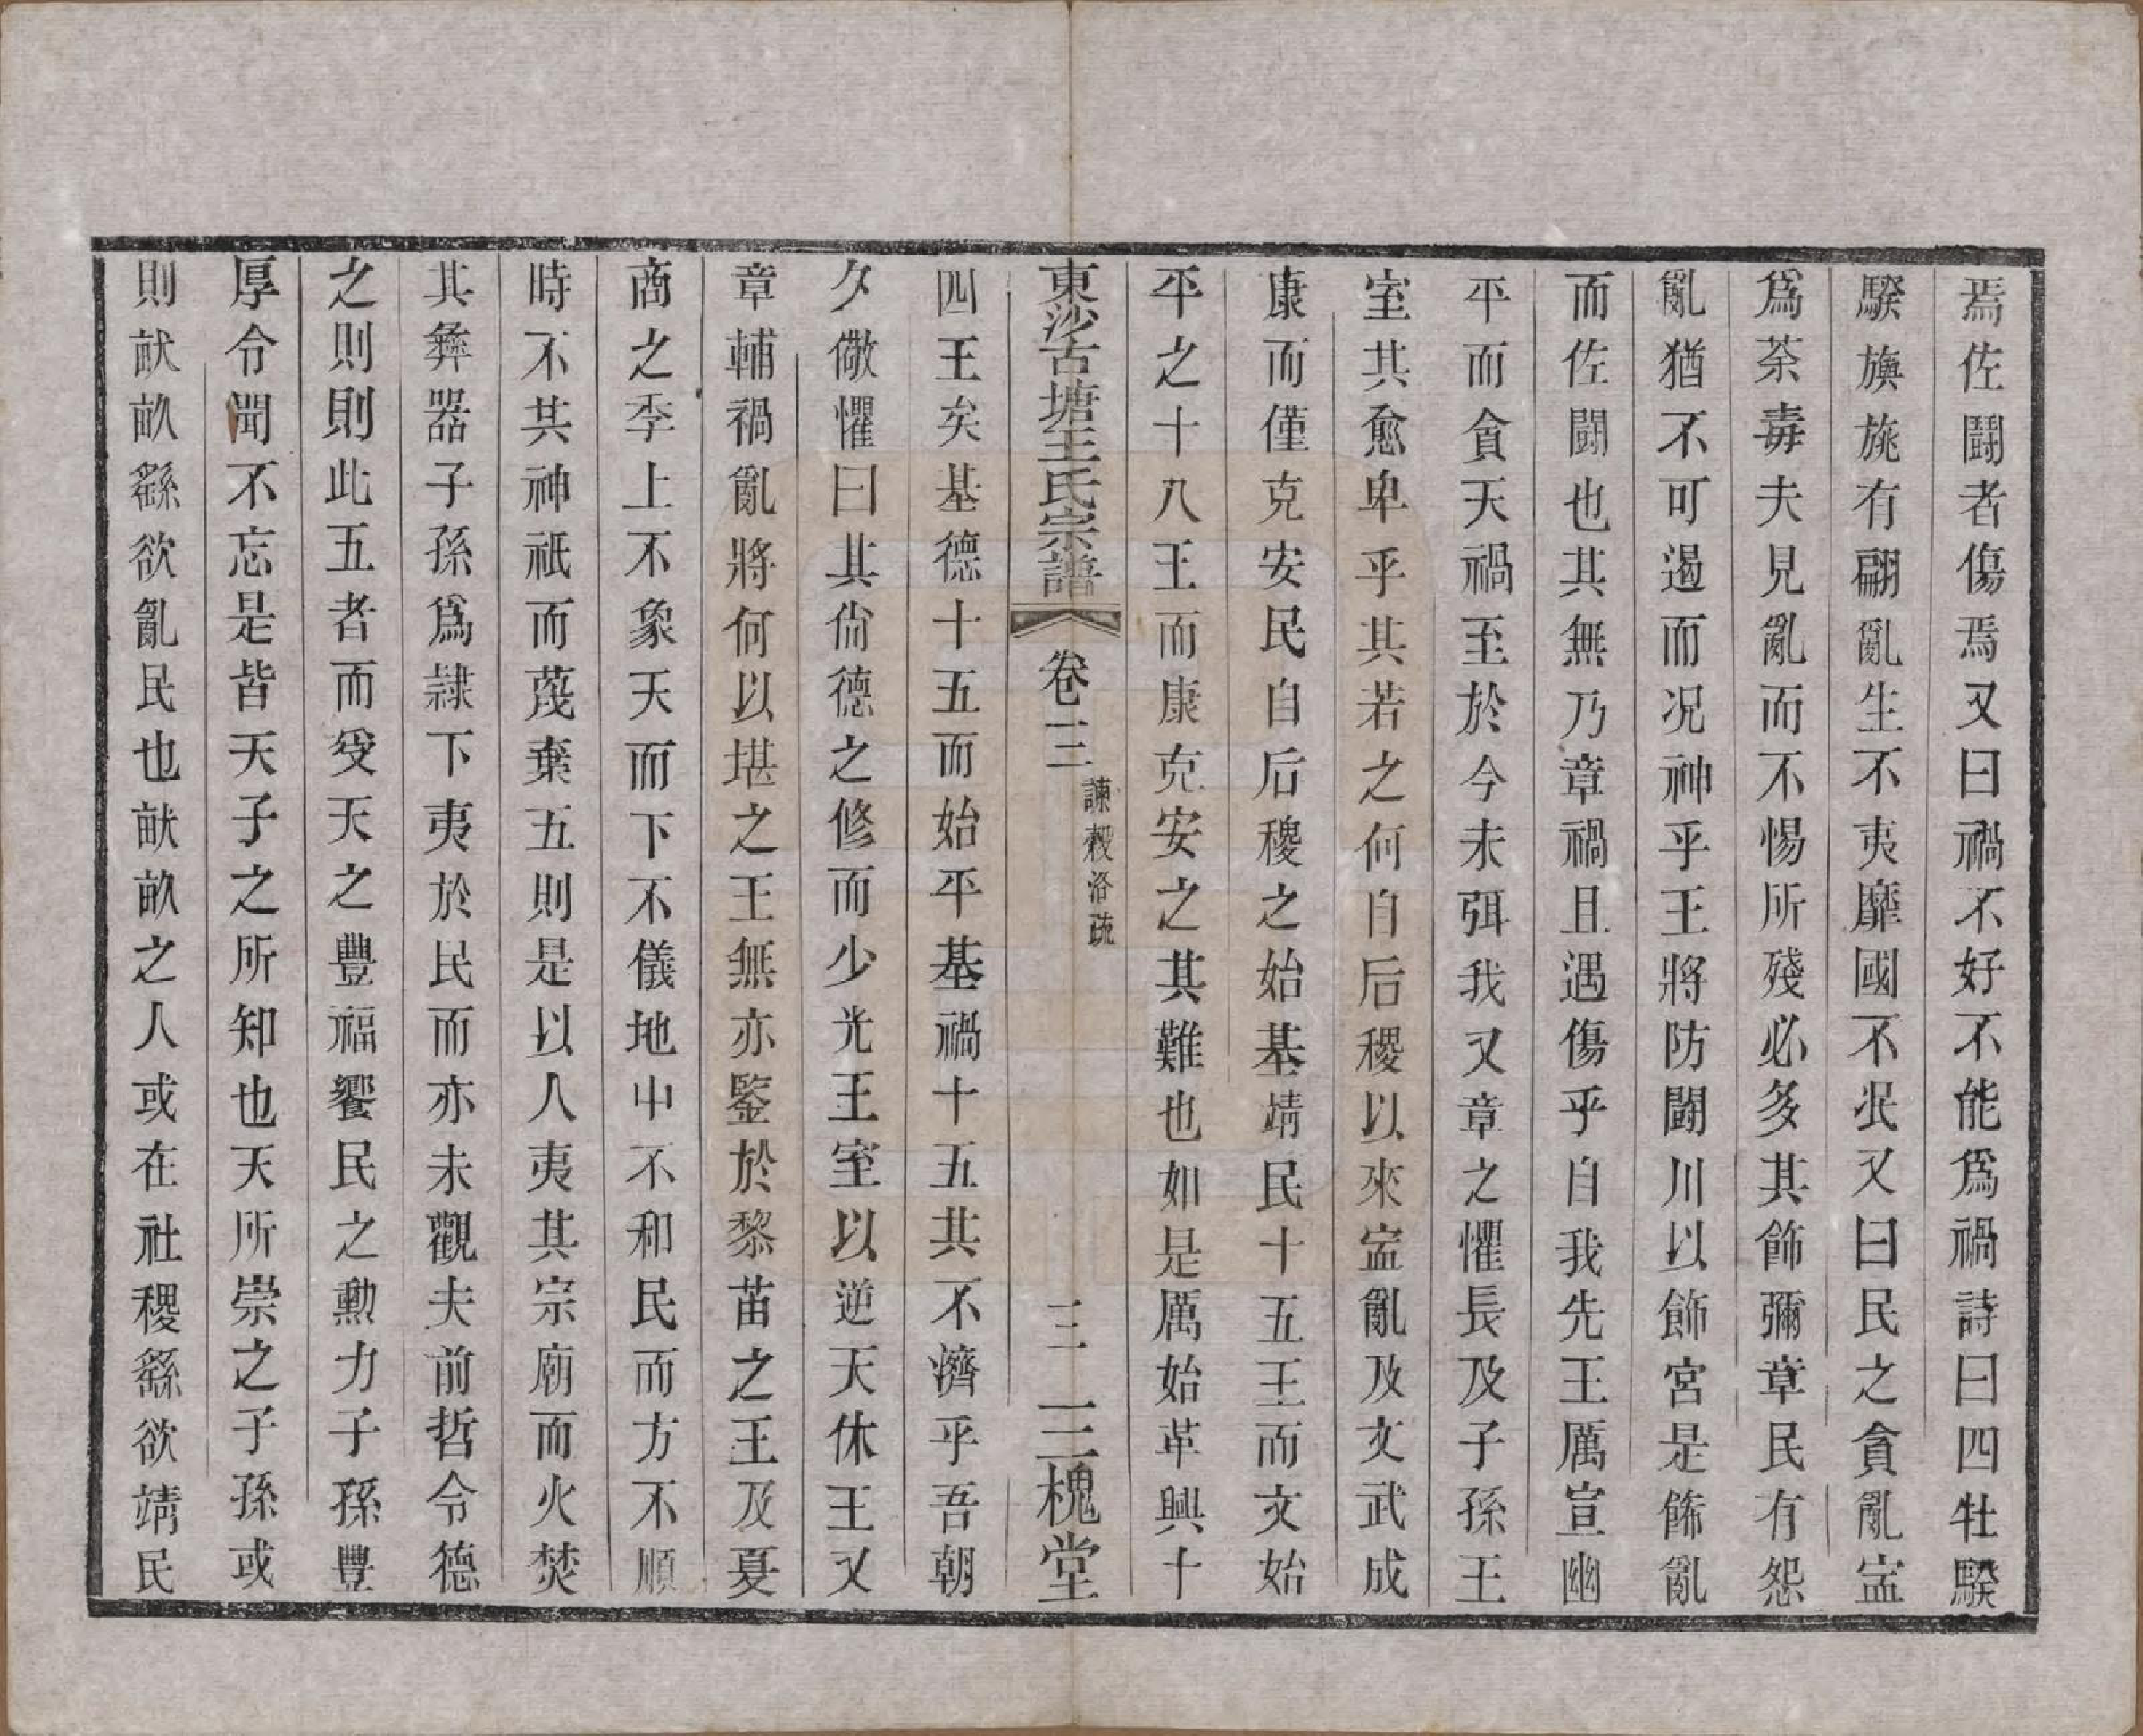 焉佐鬪者傷焉又曰禍不好不能爲禍詩曰四牡騤
騤旟旐有翩亂生不夷靡國不泯又曰民之貪亂寍
爲荼毒夫見亂而不惕所殘必多其飾彌章民有怨
亂猶不可遏而况神乎王將防鬪川以飾宮是飾亂
而佐鬪也其無乃章禍且遇傷乎自我先王厲宣幽
平而貪天禍至於今未弭我又章之懼長及子孫王
室其愈卑乎其若之何自后稷以來寍亂及文武成
康而僅克安民自后稷之始基靖民十五王而文始
平之十八王而康克安之其難也如是厲始革興十
東沙古塘王氏宗譜 卷二 諫榖洛疏 三 三槐堂
四王矣基德十五而始平基禍十五其不濟乎吾朝
夕儆懼曰其尙德之修而少光王室以逆天休王又
章輔禍亂將何以堪之王無亦鑒於黎苗之王及夏
商之季上不象天而下不儀地中不和民而方不順
時不共神祇而蔑棄五則是以人夷其宗廟而火焚
其彝器子孫爲隸下夷於民而亦未觀夫前哲令德
之則則此五者而受天之豐福饗民之勳力子孫豐
厚令聞不忘是皆天子之所知也天所崇之子孫或
則畎畝繇欲亂民也畎畝之人或在社稷繇欲靖民